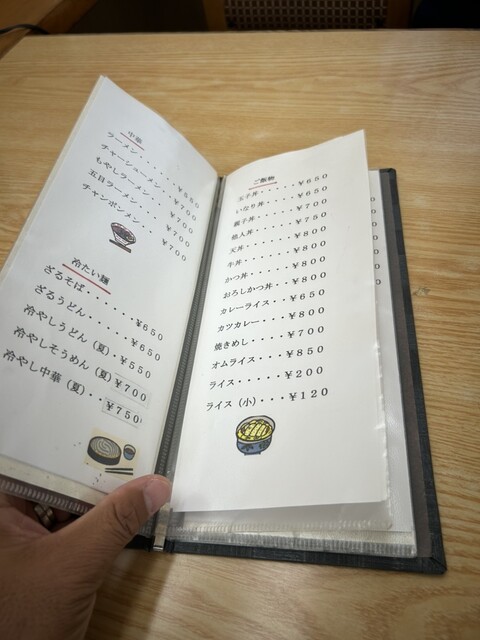 中華
ラーメン・・・・・・￥550
チャーシューメン・・・￥700
もやしラーメン・・・・￥700
五目ラーメン・・・・￥700
チャンポンメン・・・￥700
冷たい麺
ざるそば・・・・・・￥650
ざるうどん・・・・・￥650
冷やしうどん（夏）・・￥550
冷やしそうめん（夏）￥700
冷やし中華（夏）・・￥750
ご飯物
玉子丼・・・・・￥650
いなり丼・・・・￥650
親子丼・・・・・￥700
他人丼・・・・・￥750
天丼・・・・・・￥800
牛丼・・・・・・￥800
かつ丼・・・・・￥800
おろしかつ丼・・￥800
カレーライス・・￥650
カツカレー・・・￥800
焼きめし・・・・￥700
オムライス・・・￥850
ライス・・・・・￥200
ライス（小）・・・￥120